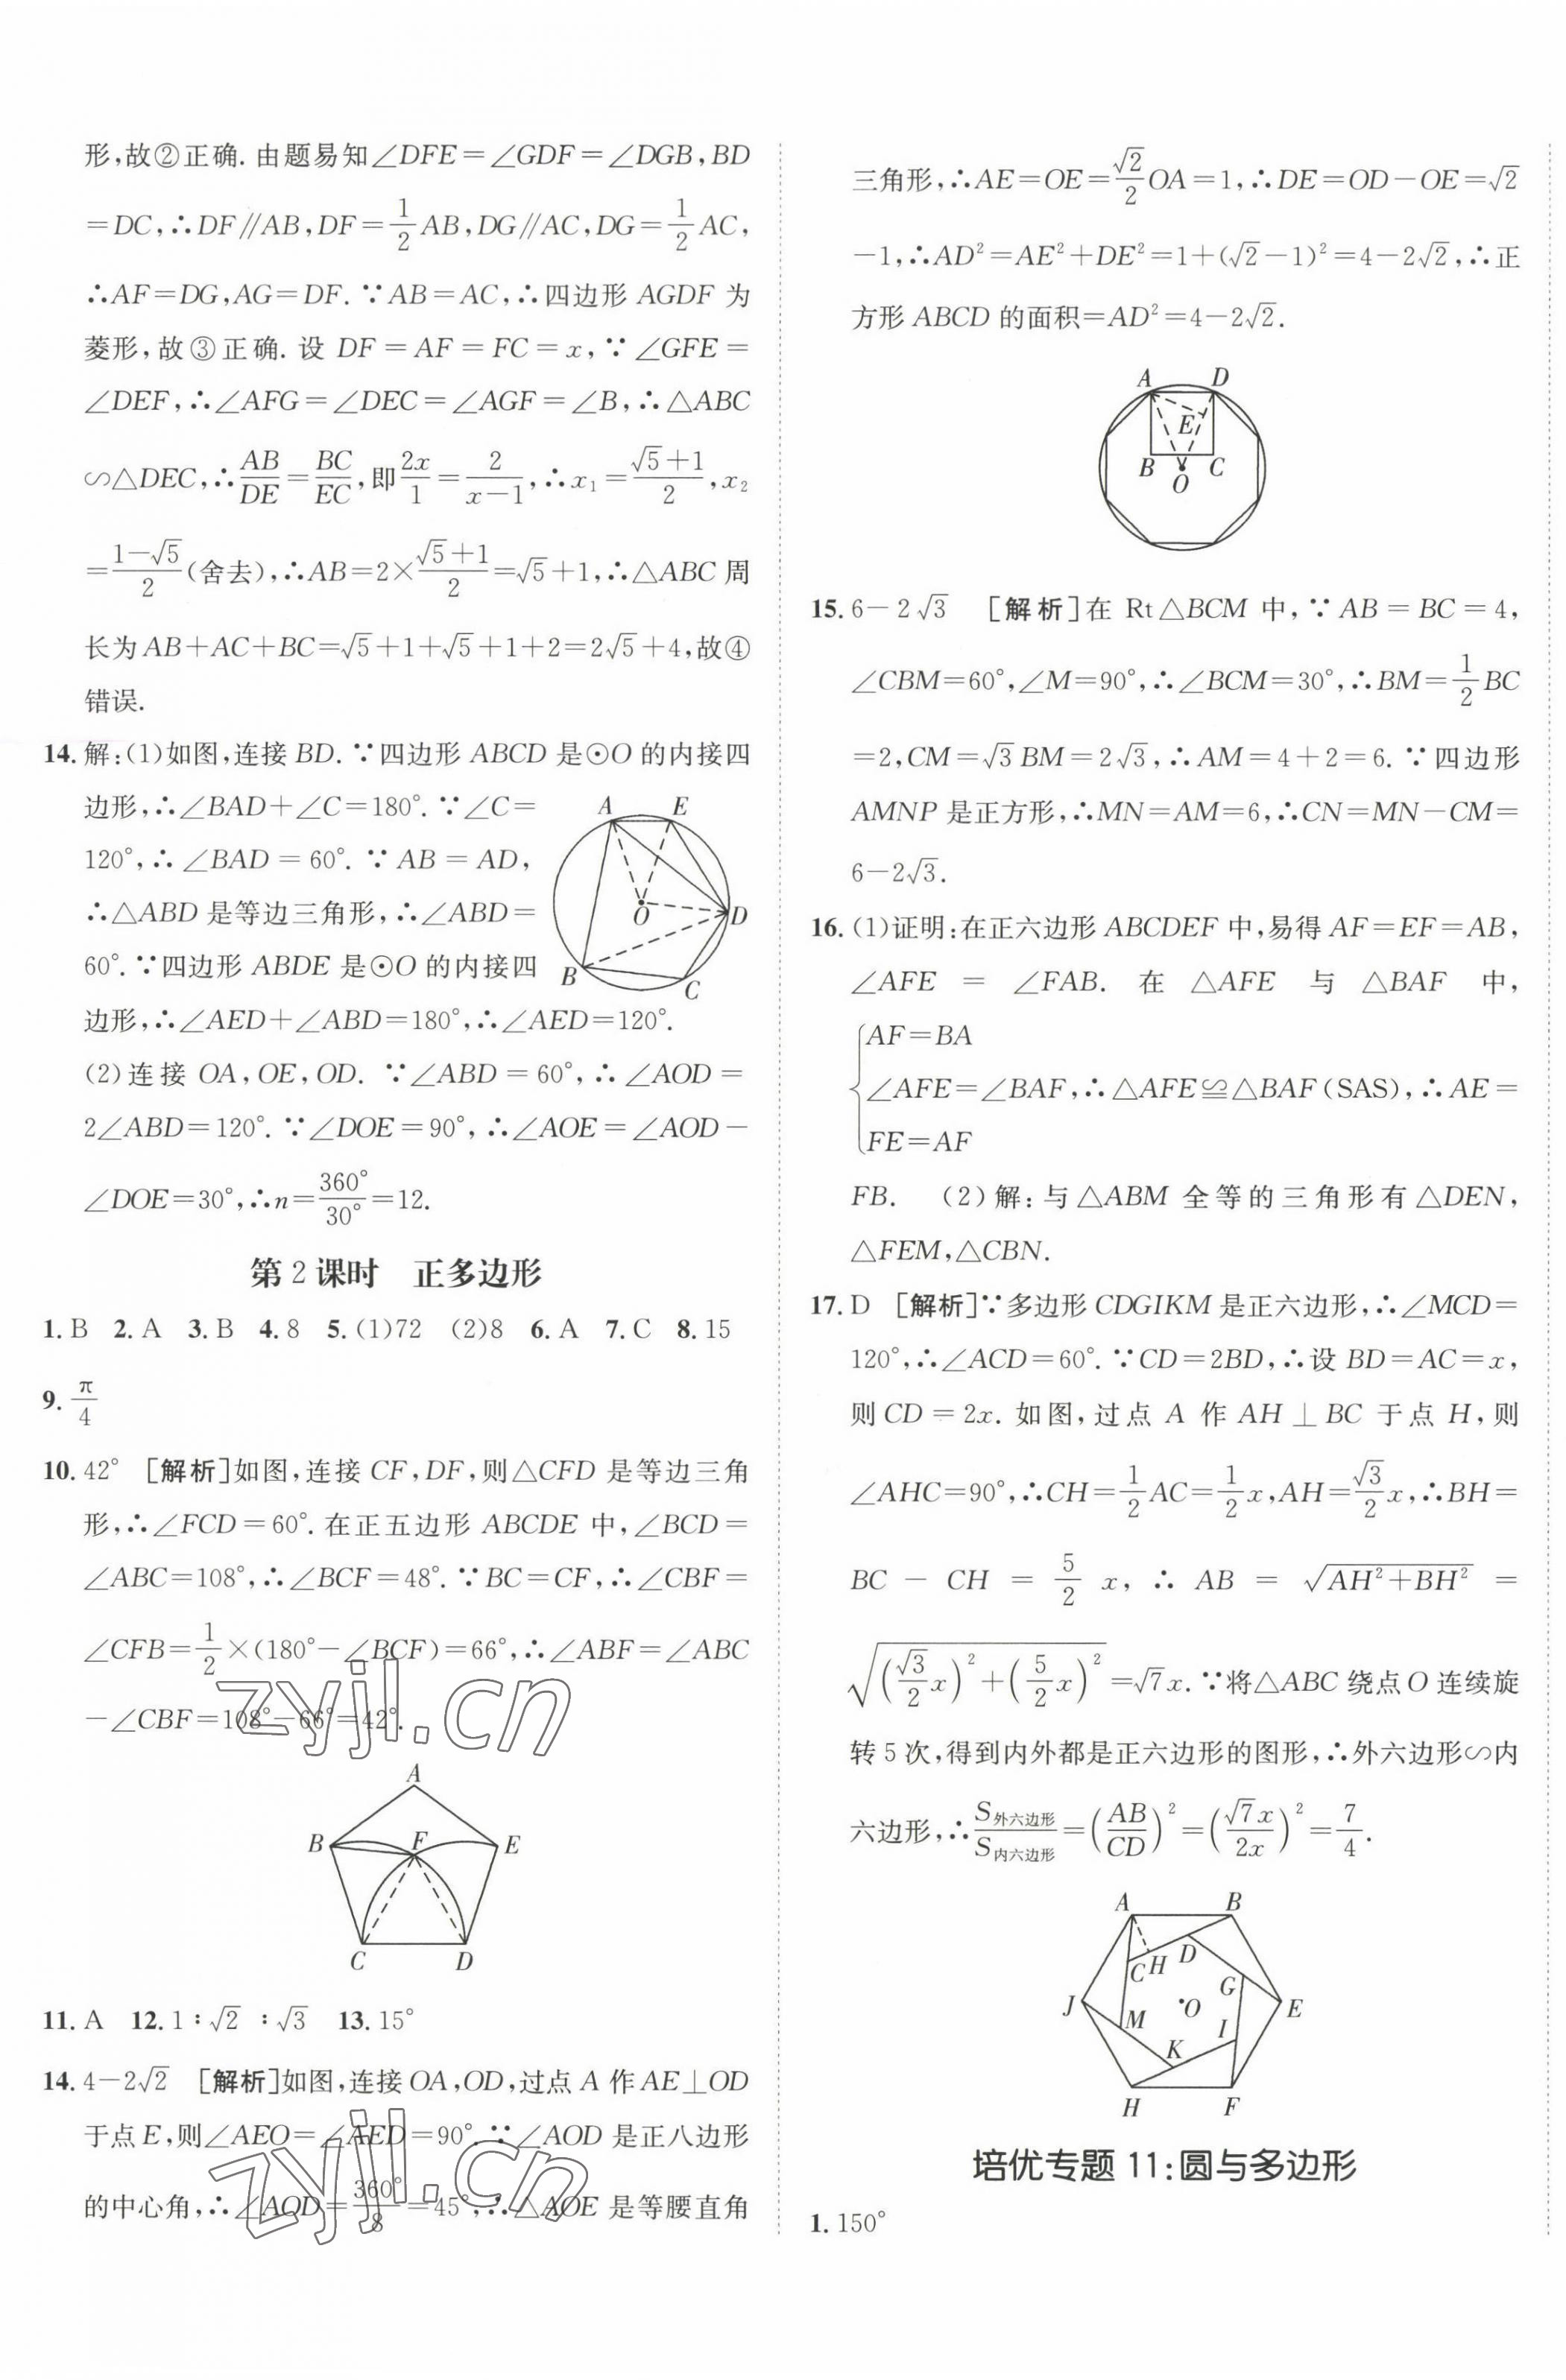 形,故②正确. 由题易知∠DFE=∠GDF=∠DGB,BD
=DC,∴DF∥AB,DF=1/2AB,DG∥AC,DG=1/2AC,
∴AF=DG,AG=DF. ∵AB=AC,∴四边形 AGDF 为
菱形,故③正确. 设 DF=AF=FC=x,∵∠GFE=
∠DEF,∴∠AFG=∠DEC=∠AGF=∠B,∴△ABC
∽△DEC,∴AB/DE=BC/EC,即2x/1=2/(x-1),∴x₁=(√5+1)/2,x₂
=(1-√5)/2(舍去),∴AB=2×(√5+1)/2=√5+1,∴△ABC 周
长为AB+AC+BC=√5+1+√5+1+2=2√5+4,故④
错误.
14. 解:(1)如图,连接 BD. ∵四边形 ABCD 是⊙O 的内接四
边形,∴∠BAD+∠C=180°. ∵∠C=
120°,∴∠BAD=60°. ∵AB=AD,
∴△ABD 是等边三角形,∴∠ABD=
60°. ∵四边形 ABDE 是⊙O 的内接四
边形,∴∠AED+∠ABD=180°,∴∠AED=120°.
A E
O
D
B
C
(2)连接 OA,OE,OD. ∵∠ABD=60°,∴∠AOD=
2∠ABD=120°. ∵∠DOE=90°,∴∠AOE=∠AOD-
∠DOE=30°,∴n=360°/30°=12.
第 2 课时 正多边形
1. B 2. A 3. B 4. 8 5. (1)72 (2)8 6. A 7. C 8. 15
9. π/4
10. 42° [解析]如图,连接 CF,DF,则△CFD 是等边三角
形,∴∠FCD=60°. 在正五边形 ABCDE 中,∠BCD=
∠ABC=108°,∴∠BCF=48°. ∵BC=CF,∴∠CBF=
∠CFB=1/2×(180°-∠BCF)=66°,∴∠ABF=∠ABC
-∠CBF=108°-66°=42°.
zyjl.cn
A
B F E
C D
11. A 12. 1∶√2∶√3 13. 15°
14. 4-2√2 [解析]如图,连接OA,OD,过点 A 作AE⊥OD
于点E,则∠AEO=∠AED=90°. ∵∠AOD 是正八边形
的中心角,∴∠AOD=360°/8=45°,∴△AOE 是等腰直角
zyjl.cn
三角形,∴AE=OE=√2/2OA=1,∴DE=OD-OE=√2
-1,∴AD²=AE²+DE²=1+(√2-1)²=4-2√2,∴正
方形 ABCD 的面积=AD²=4-2√2.
A D
E
B C
O
15. 6-2√3 [解析]在 Rt△BCM 中,∵AB=BC=4,
∠CBM=60°,∠M=90°,∴∠BCM=30°,∴BM=1/2BC
=2,CM=√3BM=2√3,∴AM=4+2=6. ∵四边形
AMNP 是正方形,∴MN=AM=6,∴CN=MN-CM=
6-2√3.
16. (1)证明:在正六边形 ABCDEF 中,易得 AF=EF=AB,
∠AFE = ∠FAB. 在 △AFE 与 △BAF 中,
AF=BA
∠AFE=∠BAF,∴△AFE≌△BAF(SAS),∴AE=
FE=AF
FB. (2)解:与△ABM 全等的三角形有△DEN,
△FEM,△CBN.
17. D [解析]∵多边形 CDGIKM 是正六边形,∴∠MCD=
120°,∴∠ACD=60°. ∵CD=2BD,∴设 BD=AC=x,
则CD=2x. 如图,过点 A 作 AH⊥BC 于点 H,则
∠AHC=90°,∴CH=1/2AC=1/2x,AH=√3/2x,∴BH=
BC - CH = 5/2 x,∴ AB = √(AH²+BH²) =
√((√3/2x)²+(5/2x)²)=√7x. ∵将△ABC 绕点O 连续旋
转 5 次,得到内外都是正六边形的图形,∴外六边形∽内
六边形,∴S外六边形/S内六边形=(AB/CD)²=(√7x/2x)²=7/4.
A B
C H D
G
J M O E
K I
H F
培优专题 11:圆与多边形
1. 150°